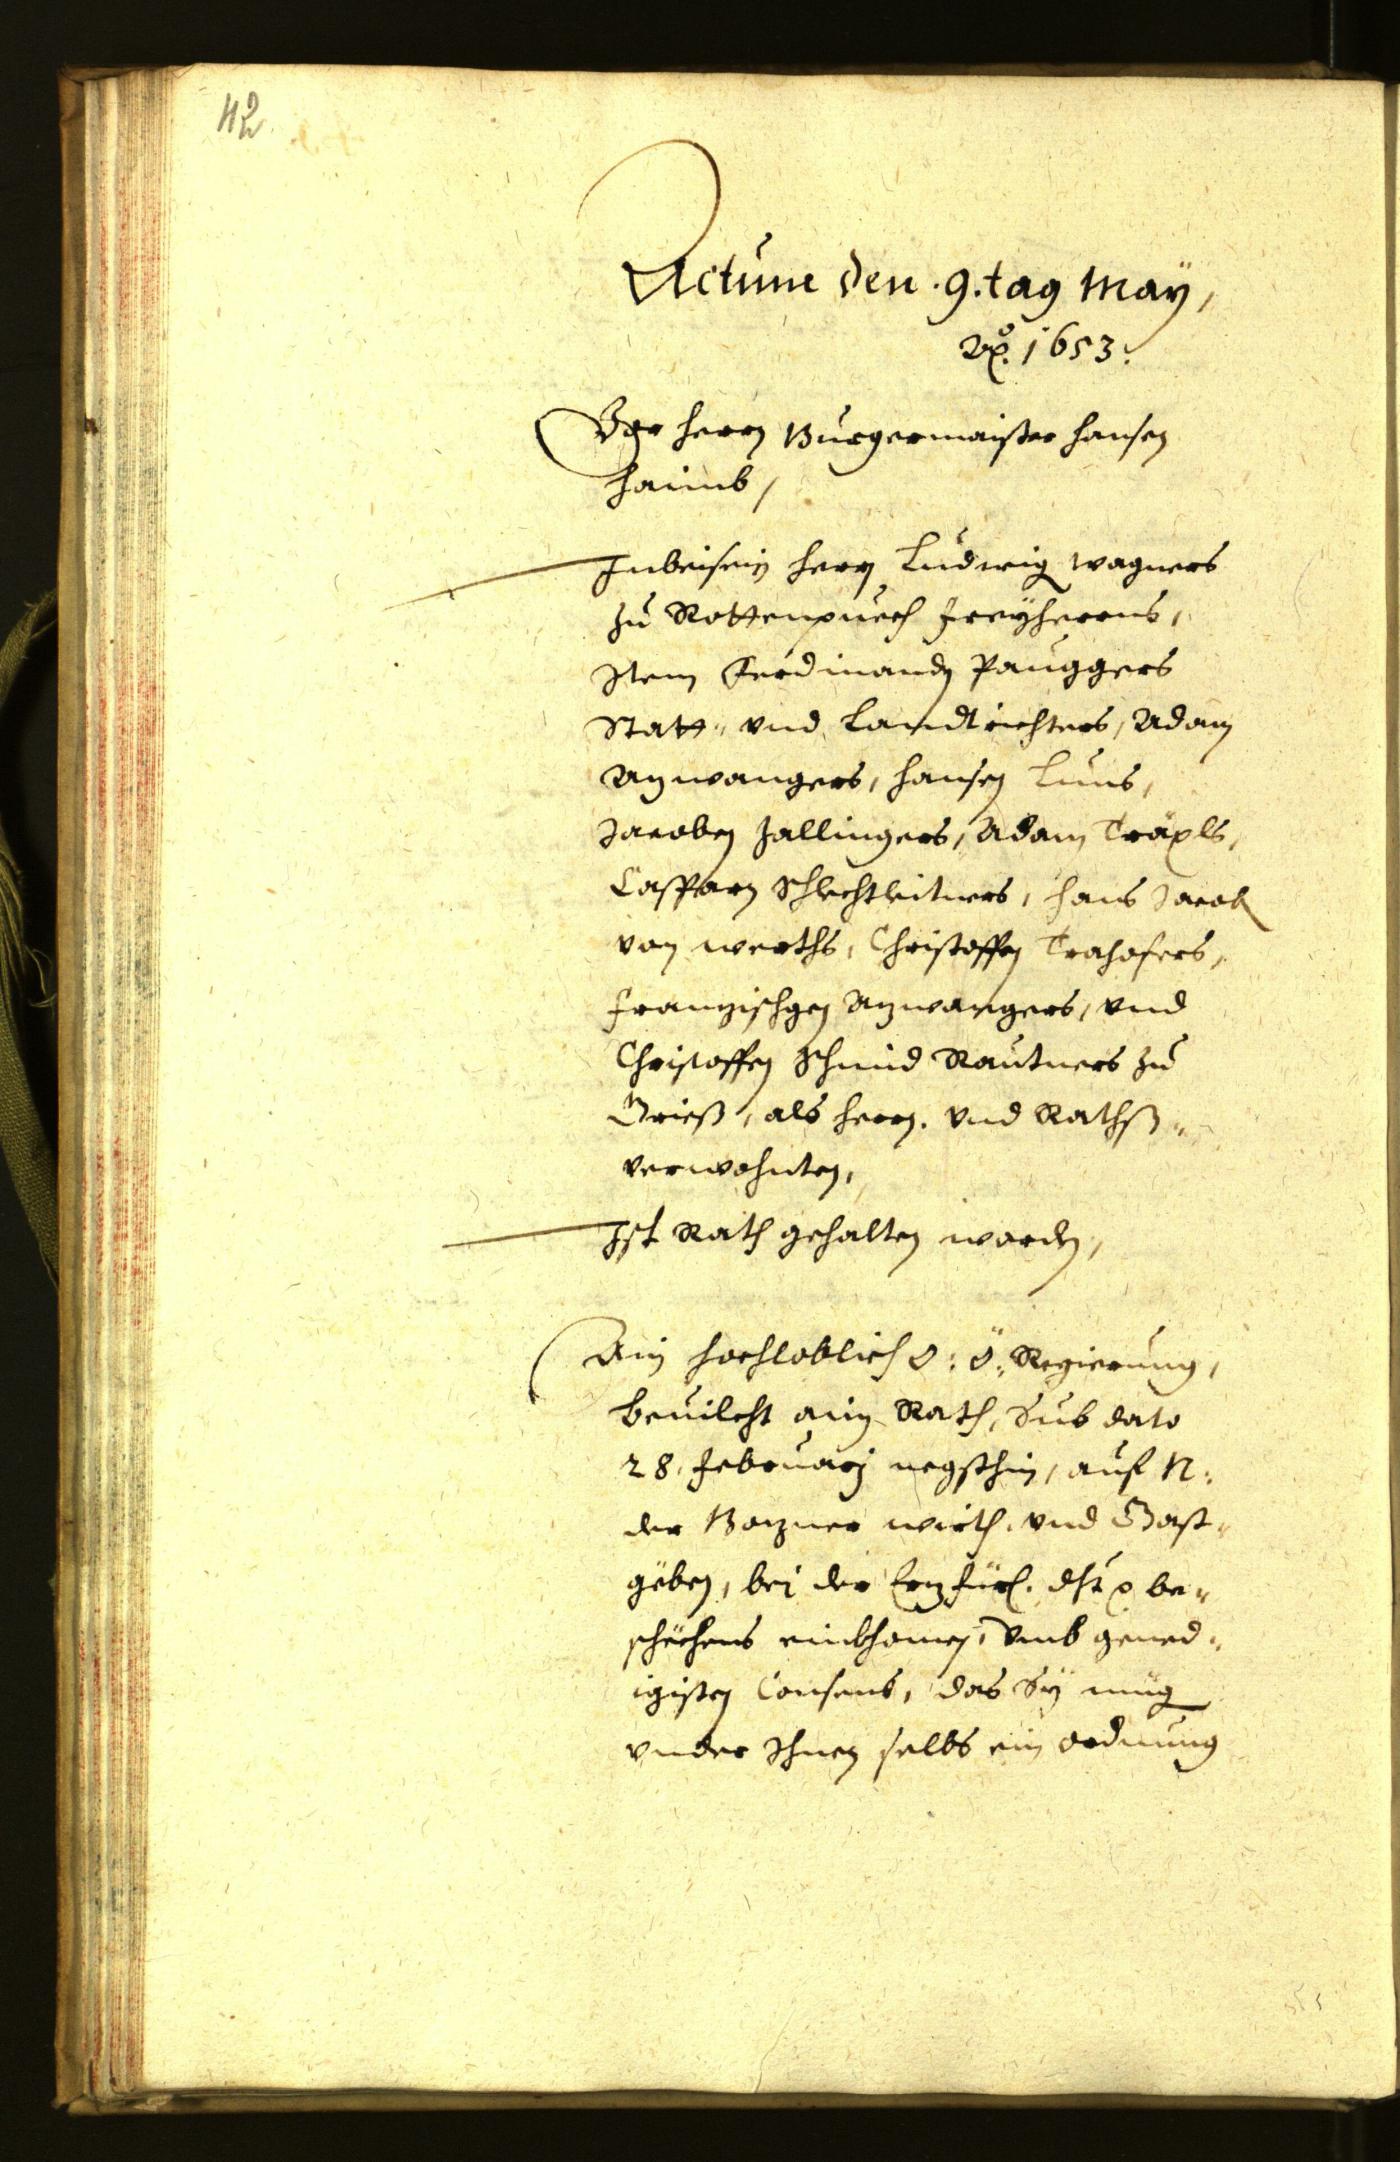 42
Actum den .9. tag May,
Aõ. 1653.
Vor herrn Burgermaister Hansen
Haimb,
Inbeisein herrn Ludwig Wagners
zu Rottenpuech Freyherrns,
Item Ferdinandn Pauggers
Statt- und Landtrichters, Adam
Anwangers, Hansen Luns,
Jacoben Zallingers, Adam Träxls,
Casparn Schlechtleitners, Hans Jacob
von Werths, Christoffen Trahofers,
Franzischgen Anwangers, und
Christoffen Schmid Rautners zu
Grieß, als herrn. und Rathß-
verwohnten,
Ist Rath gehalten worden,
Ain Hochloblich O: Ö: Regierung,
bevilcht ain Rath, Sub dato
28. Februarj negsthin, auf N:
der Bozner Wirth. und Gast-
geben, bei der Erzfürl. dht be-
schechens einkhomen, umb gened-
igisten Consens, das Sy
under Ihnen selbs ein ordnung